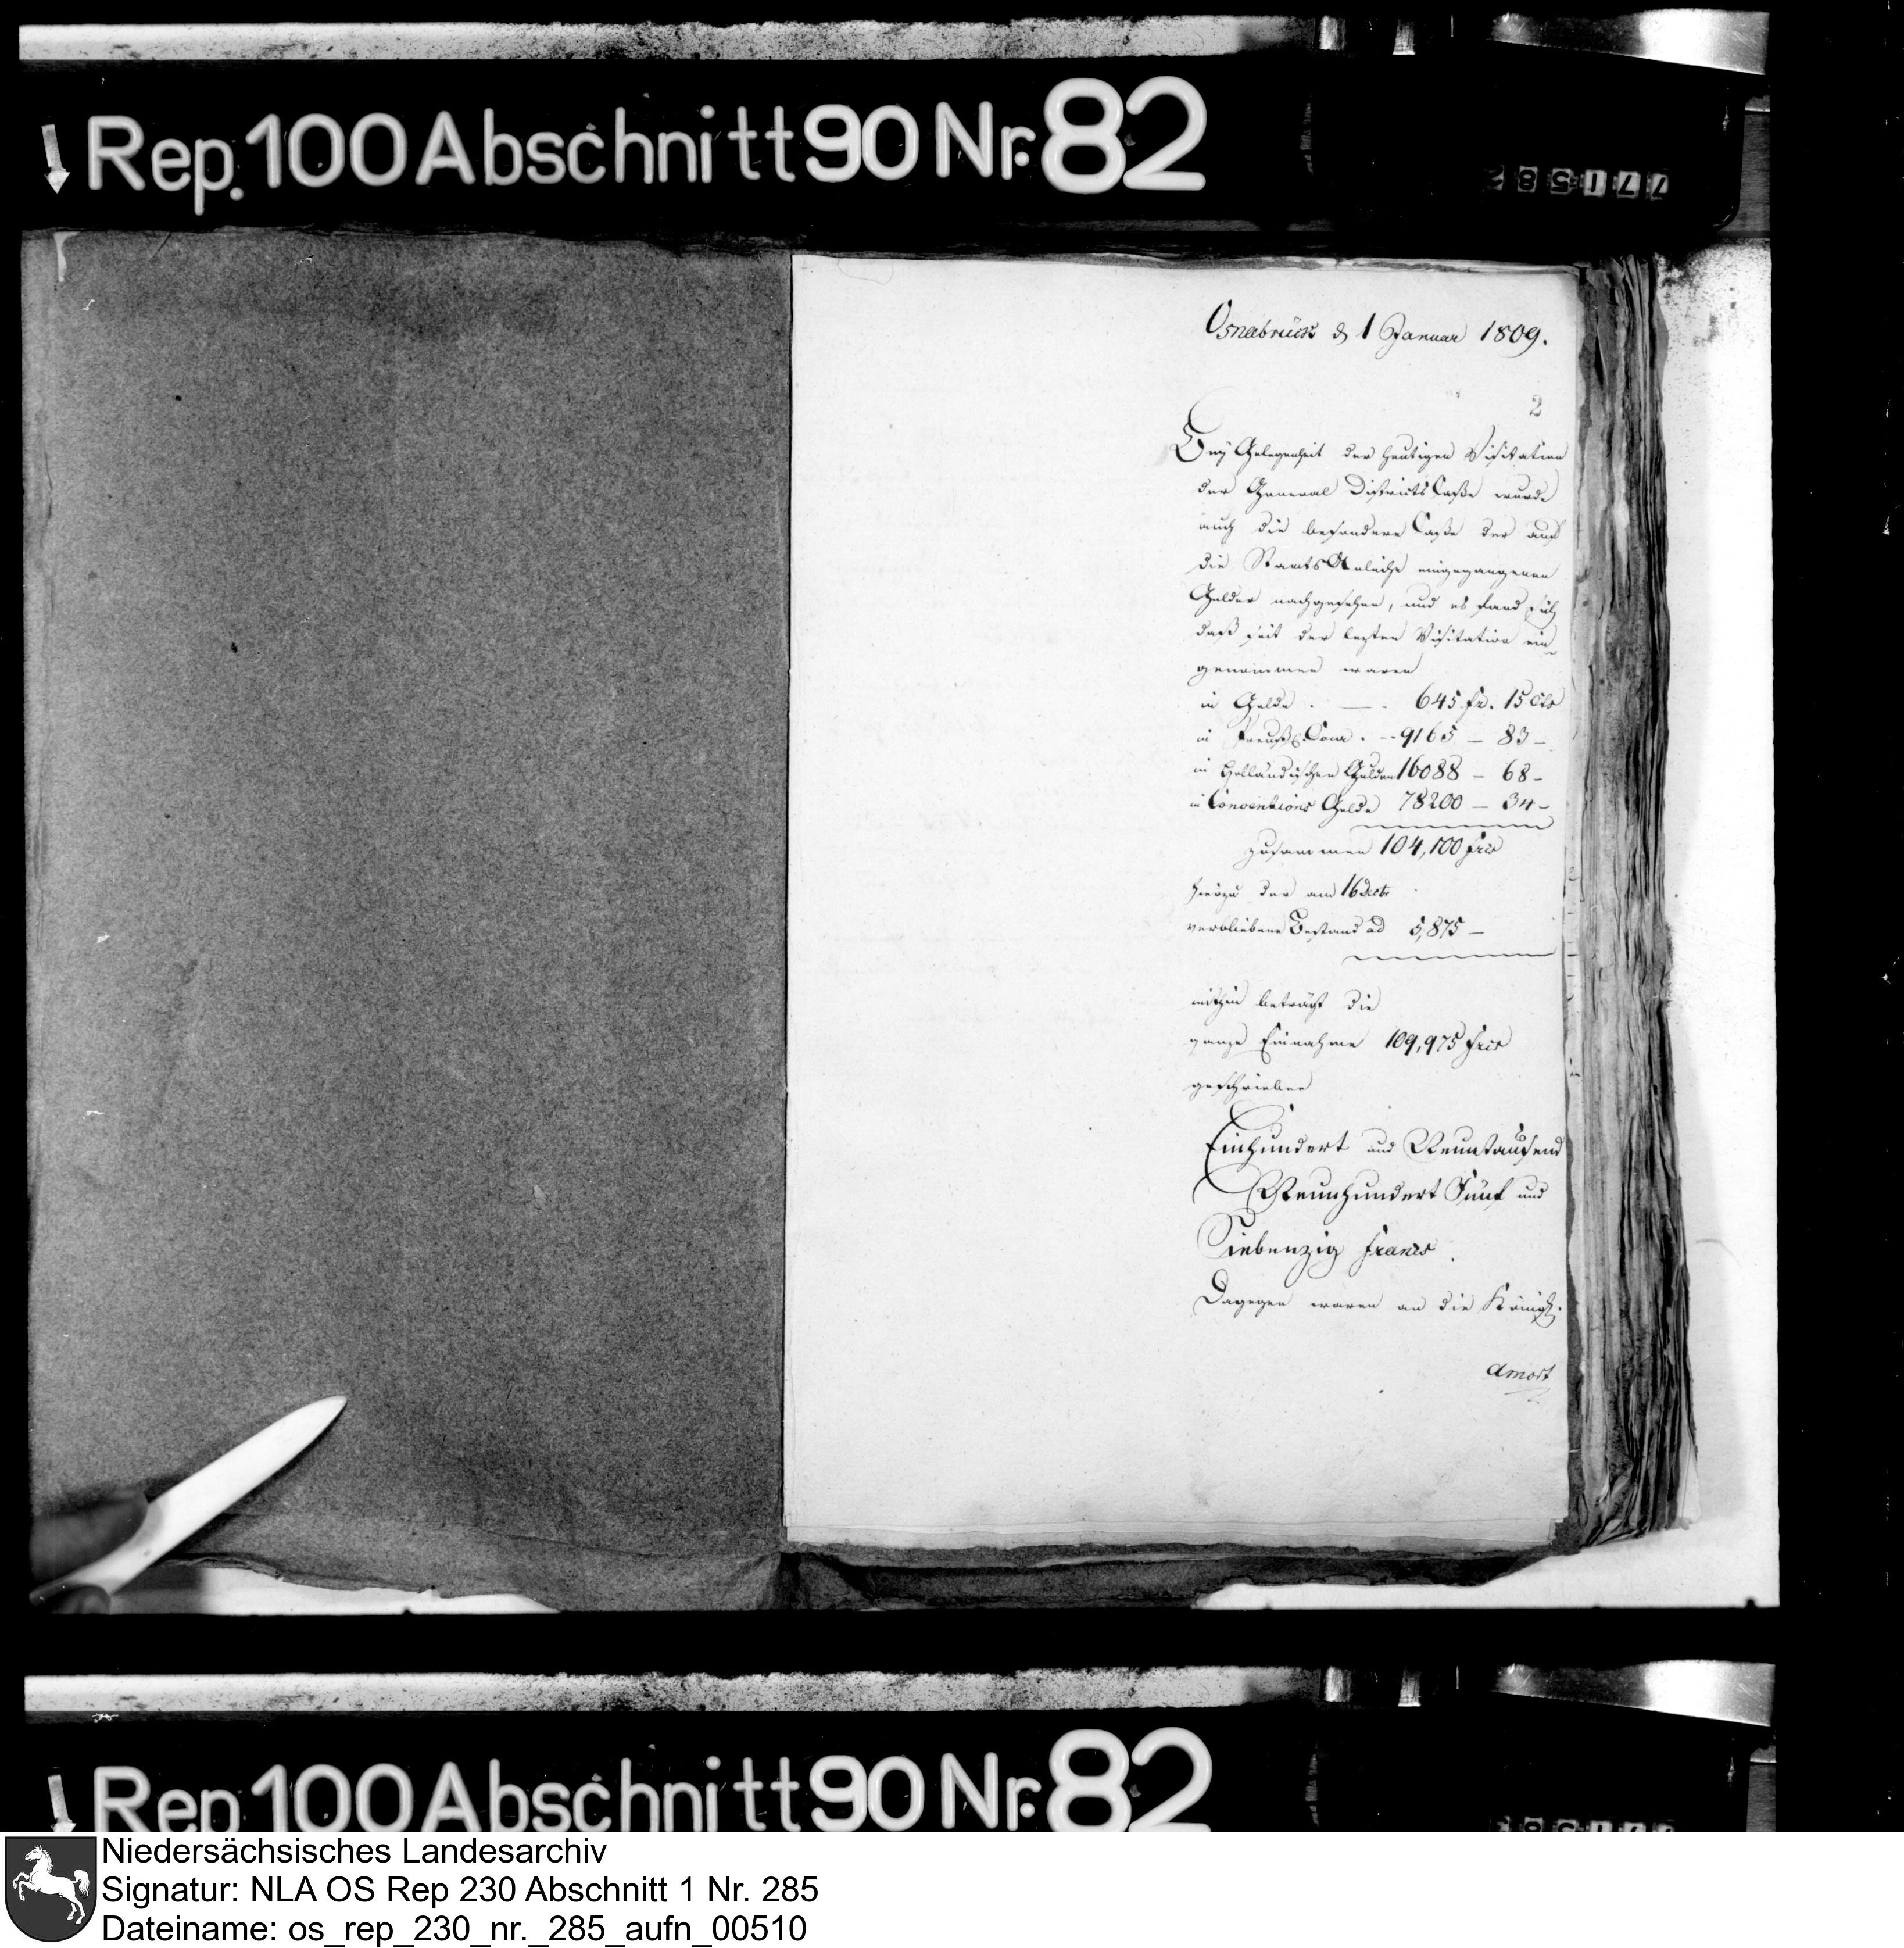 Rep. 100 Abschnitt 90 Nr. 82
771582
Osnabrück d 1 Januar 1809.
2
Bey Gelegenheit der heutigen Visitation
der General Districts Casse wurde
auch die besondere Casse der auf
die Staats Anleihe eingegangenen
Gelder nachgesehen, und es fand sich
daß seit der lezten Visitation ein
genommen waren
in Golde . — . 645 fr. 15 Cts
in Preuß. Cour. . - 9165 — 83 —
in Holländischen Gulden 16088 — 68 —
in Conventions Gelde 78200 — 34 —
zusammen 104,100 frcs
hierzu der am 16 Decbr
verbliebene Bestand ad 5,875 —
mithin beträgt die
ganze Einnahme 109,975 frcs
geschrieben
Einhundert und Neuntausend
Neunhundert Fünf und
Siebenzig francs.
Dagegen waren an die Königl.
Amort
Rep. 100 Abschnitt 90 Nr. 82
Niedersächsisches Landesarchiv
Signatur: NLA OS Rep 230 Abschnitt 1 Nr. 285
Dateiname: os_rep_230_nr._285_aufn_00510